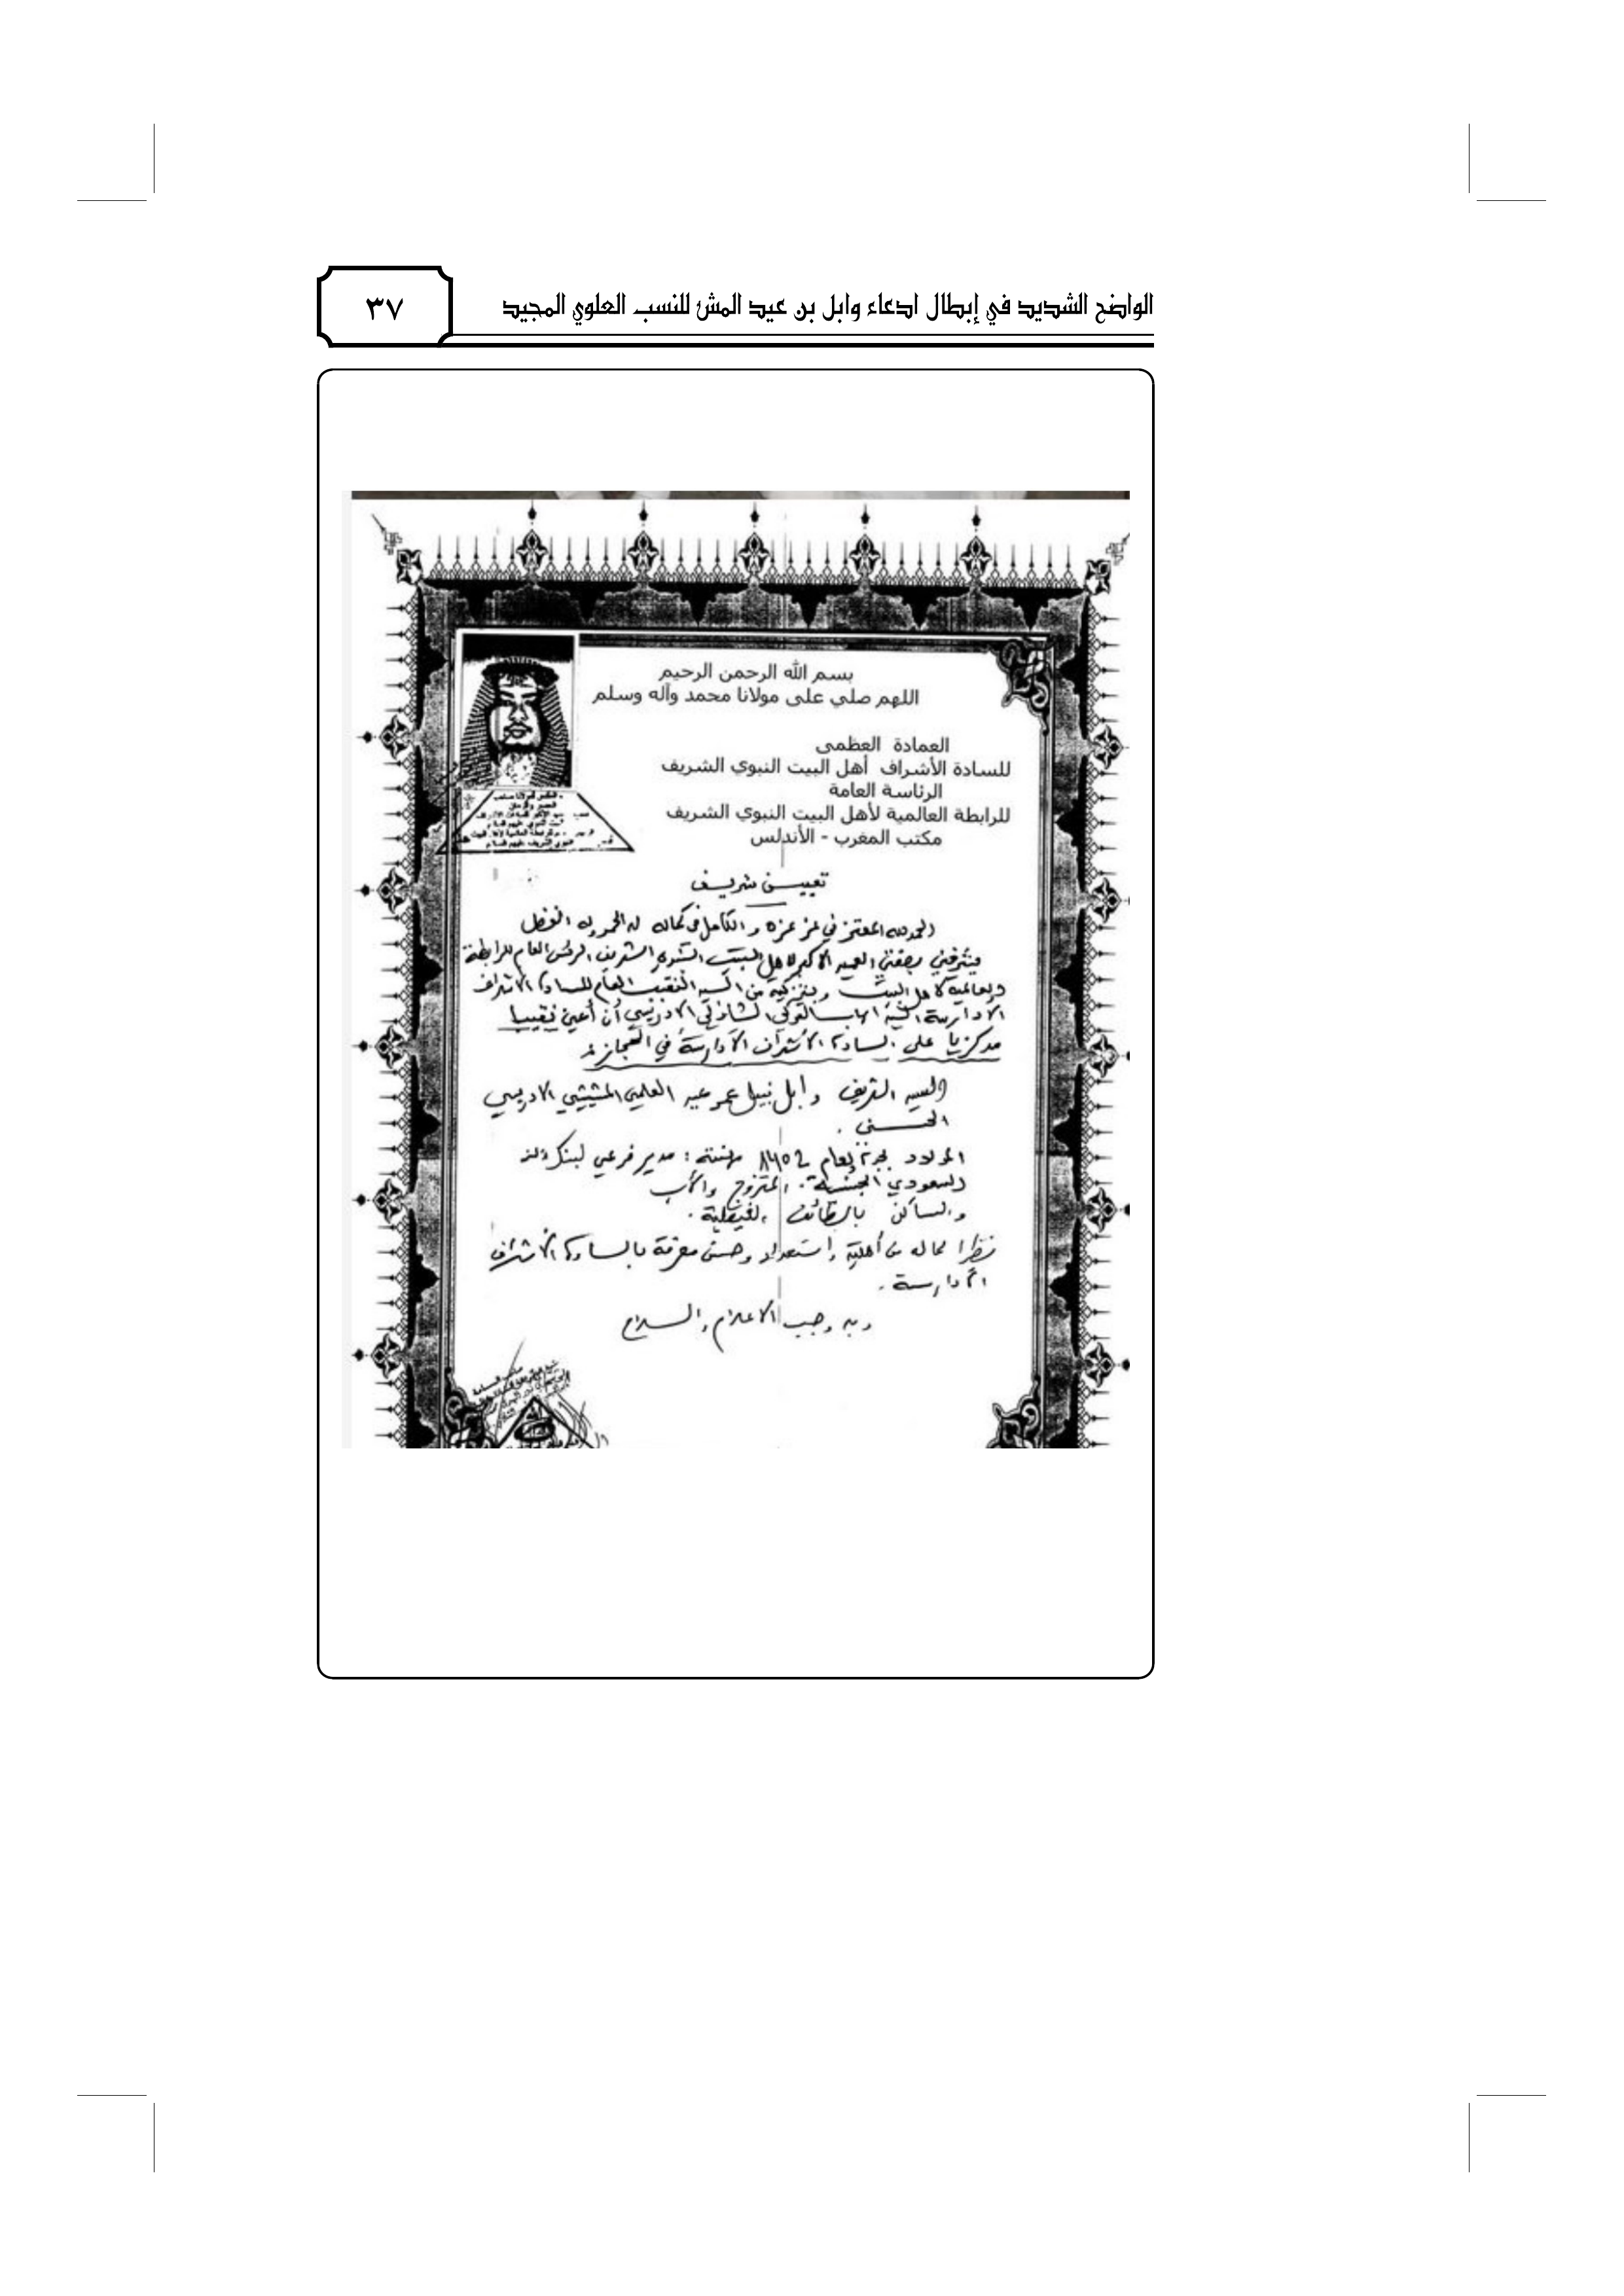 الواضح الشديد في إبطال ادعاء وابل بن عيد المش للنسب العلوي المجيد
٣٧
بسم الله الرحمن الرحيم
اللهم صلي على مولانا محمد وآله وسلم
العمادة العظمى
للسادة الأشراف أهل البيت النبوي الشريف
الرئاسة العامة
للرابطة العالمية لأهل البيت النبوي الشريف
مكتب المغرب - الأندلس
تعيين شريف
الحمد لله المعتز في عز عزه والكامل في كماله له الحمد وله الفضل
يشرفني بصفتي العميد الأكبر لأهل البيت النبوي الشريف الرئيس العام للرابطة
العالمية لأهل البيت وبتزكية من السيد النقيب العام للسادة الأشراف
الأدارسة السيد الشاذلي الإدريسي أن أعين نقيبا
مركزيا على السادة الأشراف الأدارسة في الحجاز
السيد الشريف وابل نبيل عمر عيد العلمي المشيشي الادريسي
الحسني .
المولود بجدة بعام مهنته : مدير فرعي لبنك
السعودي الجنسية . المتزوج والأب
والساكن بالطائف الفيصلية .
نظرا لما له من أهلية واستعداد وحسن معرفة بالسادة الأشراف
الأدارسة .
وبه وجب الاعلام والسلام